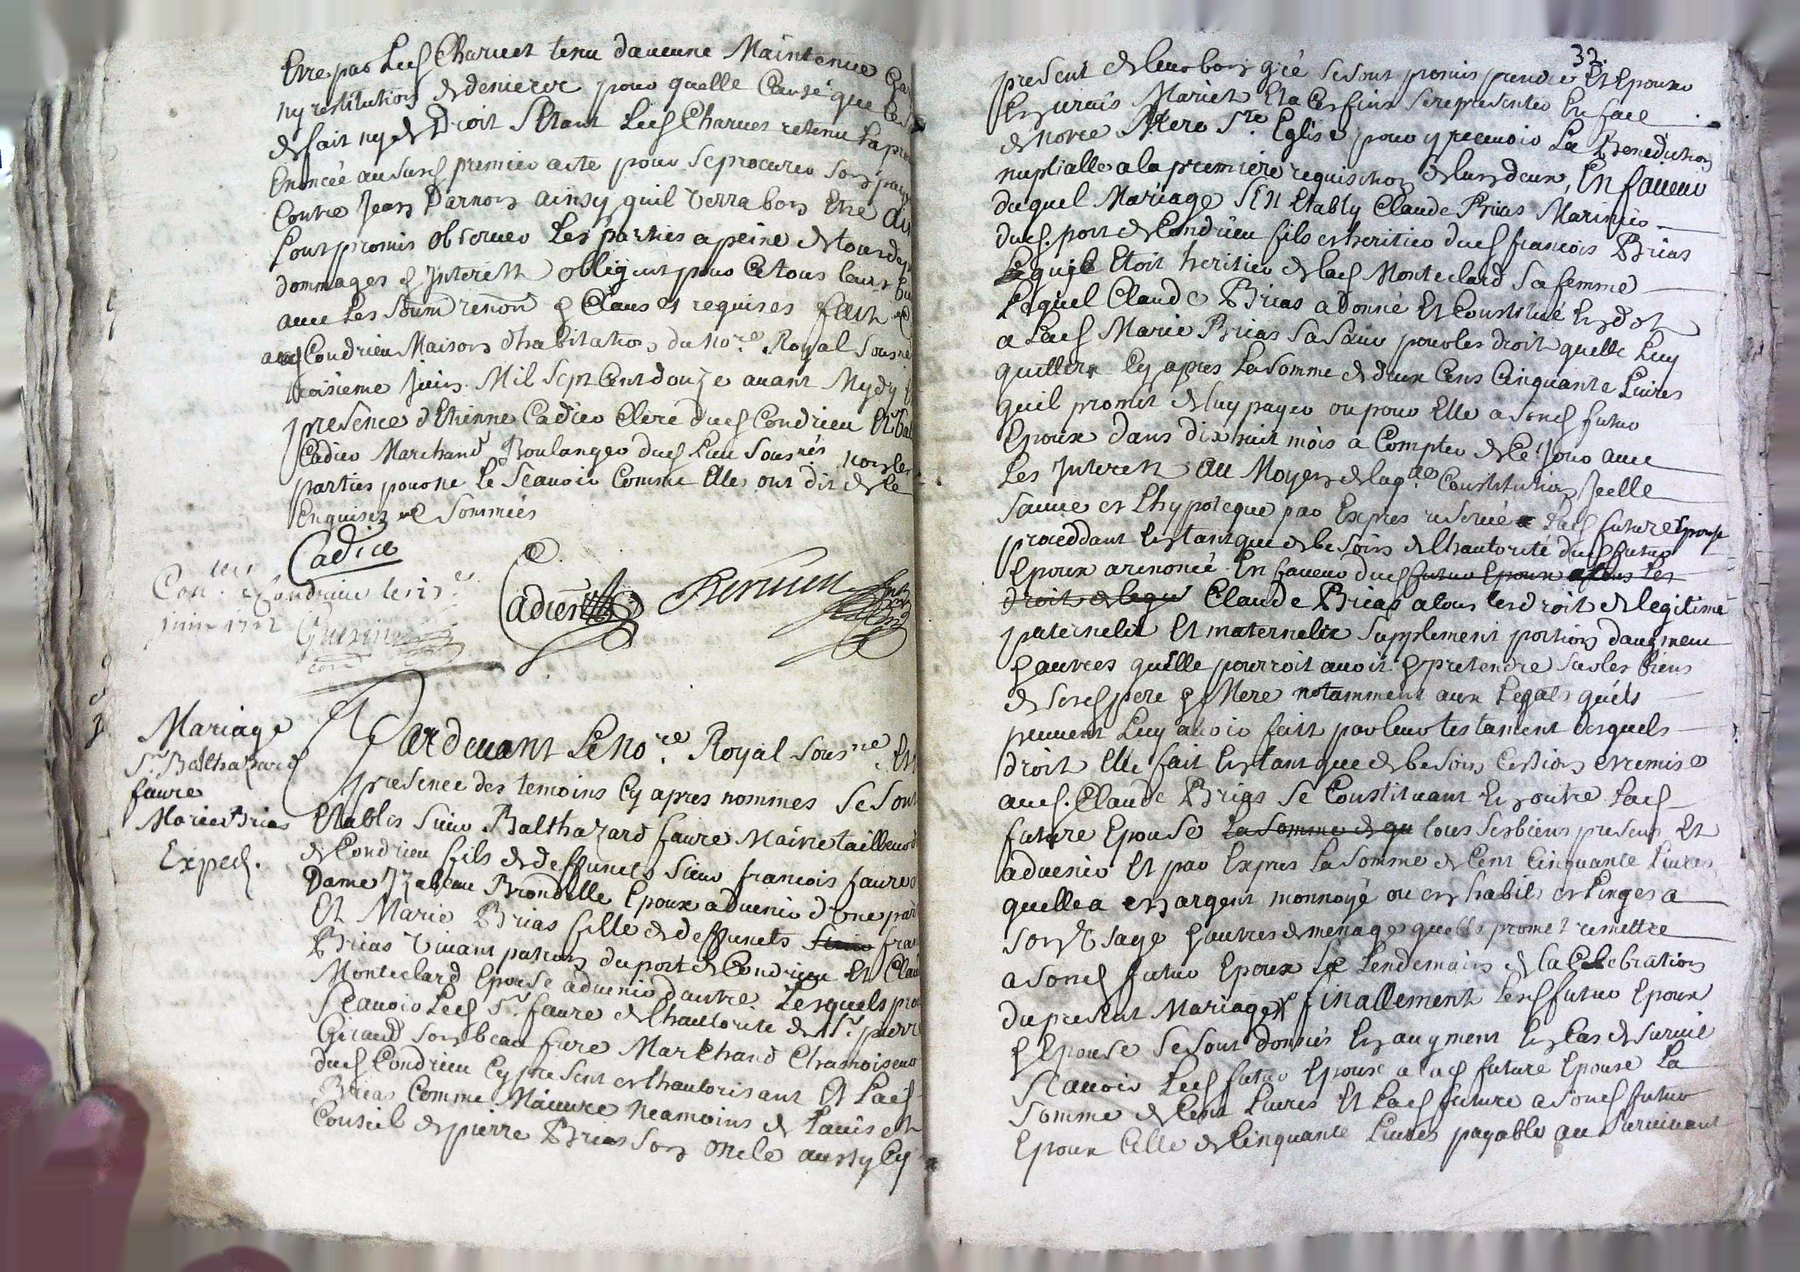 Etre par Led Charvet tenu d'aucune Maintenue
ny restitution de deniers pour quelle Cause que
de fait ny de Droit S'Etant Led Charvet retenu La
Enoncée au Susd premier acte pour Se procurer Son
Contre Jean Darnon ainsy quil verra bon Etre
Lont promis Observer Les parties a peine de tous
dommages & Interetz obligent pour Ce tous leurs
avec Les Soum renon & Claus et requises fait
aud Condrieu Maison d'habitation du No.re Royal Sous
troisieme Juin Mil Sept Cent douze avant Mydy
presence d'Etienne Cadier Clerc dud Condrieu Et
Cadier Marchand Boulanger dud Lieu Sousnés non les
parties pour ne Le Scavoir Comme Elles ont dit de Ce
Enquises et Sommées
Cadier
Cadier
Con. a Condrieu le 13e
juin 1712
Mariage
Sr. Balthazard
faure
Marie Brias
Exped.
Pardevant Le No.re Royal Sousne. Et
presence des temoins Cy apres nommes Se Sont
Etablis Sieur Balthazard faure Maitre tailleur
de Condrieu fils de deffunets Sieur francois faure
Dame Izabeau Brondelle Epoux advenir d'Une part
Et Marie Brias fille de deffunets Sieur
Brias Vivant patron du port de Condrieu Et
Monteclard Epouse advenir d'autre Lesquels
Scavoir Led Sr. faure de Lhautorite de Sr. pierre
Giraud Son beau frere Marchand Chamoiseur
dud Condrieu Cy present et Lhautorisant Et Lad
Brias Comme Mineure neamoins de Lavis et
Conseil de pierre Brias Son Oncle aussy Cy
33.
present de leur bon gré Se Sont promis prendre Et Epouser
En vrais Mariez Et a Ces fins Se representer En face
de Notre Mere Ste. Eglise pour y recevoir La Benediction
nuptialle a la premiere requisition de lun deux, En faveur
duquel Mariage S'En Etably Claude Brias Marinier
dud. port de Condrieu fils et heritier dud francois Brias
quil Etoit heritier de lad Monteclard Sa femme
Lequel Claude Brias a donné Et Constitué En dot
a Lad Marie Brias Sa Soeur pour les droit quelle Luy
quittera Cy apres La Somme de deux Cens Cinquante Livres
quil promet de luy payer ou pour Elle a Sond futur
Epoux dans dix huit mois a Compter de Ce Jour avec
Les Interetz au Moyen de laq.lle Constitution Jcelle
Sauve et Lhypoteque par Expres reservée Lad future Epouse
proceddant En tant que de besoin de Lhautorité dud futur
Epoux a renoncé En faveur dud futur Epoux a tous Les
droit de legi Claude Brias a tous les droit de legitime
paternelle Et maternelle Supplement portion d'augment
& autres quelle pourroit avoir & pretendre Sur les biens
de Sesd pere & Mere notamment aux Legats quils
peuvent Luy avoir fait par leur testament desquels
droit Elle fait En tant que de besoin Cession et remise
aud. Claude Brias Se Constituant En outre Lad
future Epouse La Somme de qu tous Ses biens presens Et
advenir Et par Expres La Somme de Cent Cinquante Livres
quelle a en argent monnoyé ou en habits et Linges a
Son Usage & autres de menage quelle promet remettre
a Sond futur Epoux Le Lendemain de la Celebration
du present Mariage & finallement Lesd futur Epoux
& Epouse Se Sont donnés En augment En Cas de Survie
Scavoir Led futur Epoux a lad future Epouse La
Somme de Cent Livres Et Lad future a Sond futur
Epoux Celle de Cinquante Livres payable au Survivant